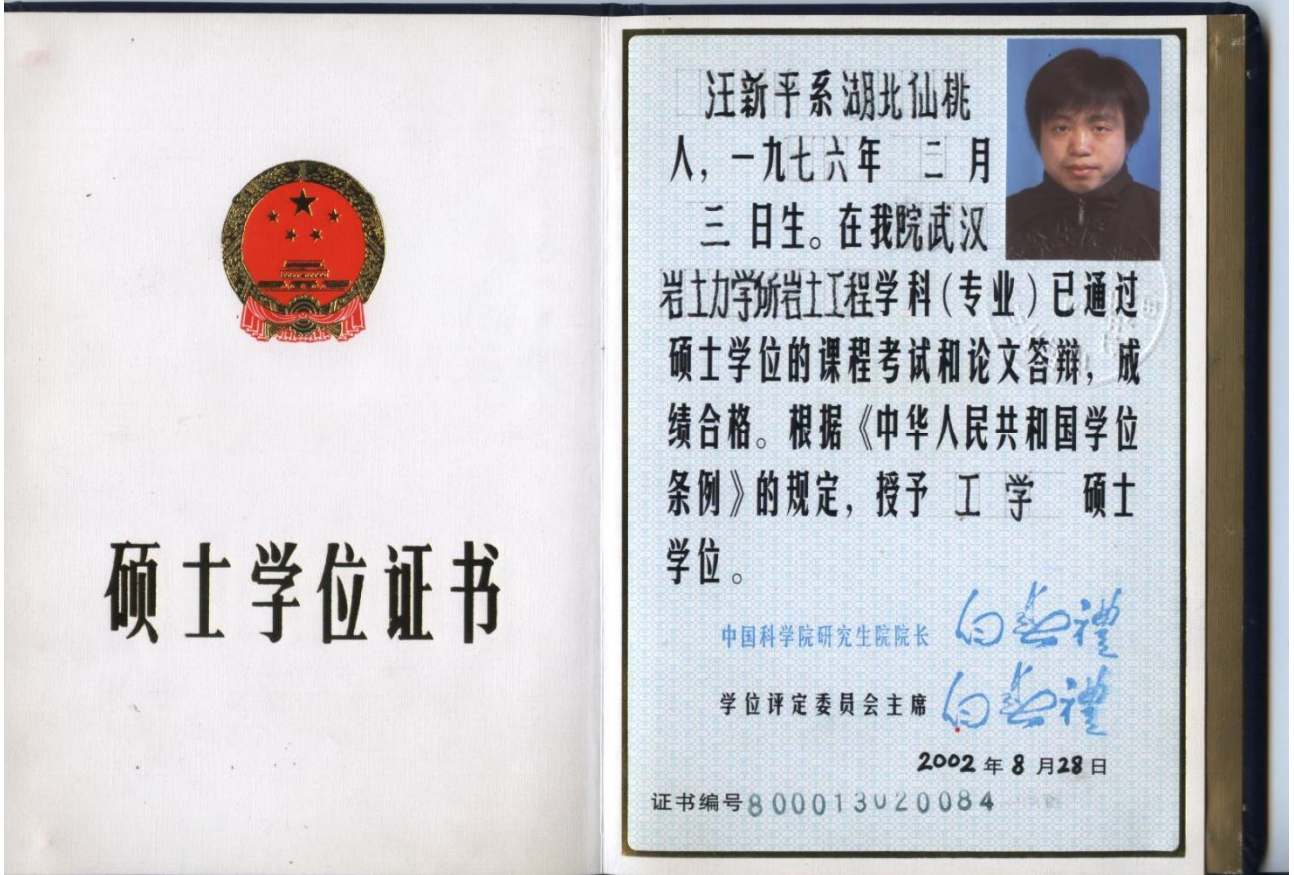 硕士学位证书
汪新平系湖北仙桃
人，一九七六年 二 月
三 日生。在我院武汉
岩土力学所岩土工程学科（专业）已通过
硕士学位的课程考试和论文答辩，成
绩合格。根据《中华人民共和国学位
条例》的规定，授予 工 学 硕士
学位。
中国科学院研究生院院长 白春禮
学位评定委员会主席 白春禮
2002 年 8 月28 日
证书编号800013020084